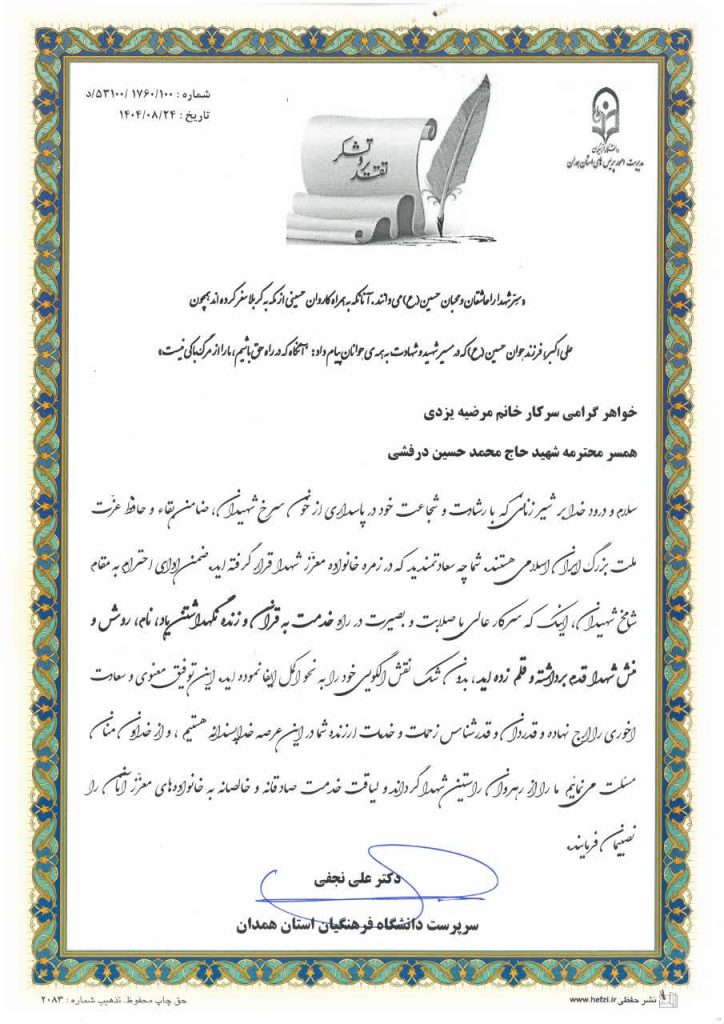 شماره : ۱۷۶۰/۱۰۰ /۵۳۱۰۰/د
تاریخ : ۱۴۰۴/۰۸/۲۴
دانشگاه فرهنگیان
مدیریت امور پردیس های استان همدان
تقدیر و تشکر
«سِرّ شهدا را عاشقان و محبان حسین (ع) می دانند. آنانکه به همراه کاروان حسینی از مکه به کربلا سفر کرده اند همچون
علی اکبر، فرزند جوان حسین (ع) که در مسیر شهید و شهادت به همه ی جوانان پیام داد: "آنگاه که در راه حق باشیم، ما را از مرگ باکی نیست»
خواهر گرامی سرکار خانم مرضیه یزدی
همسر محترمه شهید حاج محمد حسین درفشی
سلام و درود خدا بر شیر زنانی که با رشادت و شجاعت خود در پاسداری از خون سرخ شهیدان، ضامن بقاء و حافظ عزّت
ملت بزرگ ایران اسلامی هستند. شما چه سعادتمندید که در زمره خانواده معزّز شهدا قرار گرفته اید. ضمن ادای احترام به مقام
شامخ شهیدان، اینک که سرکار عالی با صلابت و بصیرت در راه خدمت به قرآن و زنده نگهداشتن یاد، نام، روش و
منش شهدا قدم برداشته و قلم زده اید، بدون شک نقش الگویی خود را به نحو اکمل ایفا نموده اید. این توفیق معنوی و سعادت
اخروی را ارج نهاده و قدردان و قدرشناس زحمات و خدمات ارزنده شما در این عرصه خداپسندانه هستیم ، و از خداوند منان
مسئلت می نمائیم ما را از رهروان راستین شهدا گرداند و لیاقت خدمت صادقانه و خالصانه به خانواده های معزّز آنان را
نصیبمان فرمایند.
دکتر علی نجفی
سرپرست دانشگاه فرهنگیان استان همدان
نشر حفظی www.hefzi.ir
حق چاپ محفوظ. تذهیب شماره : ۲۰۸۳